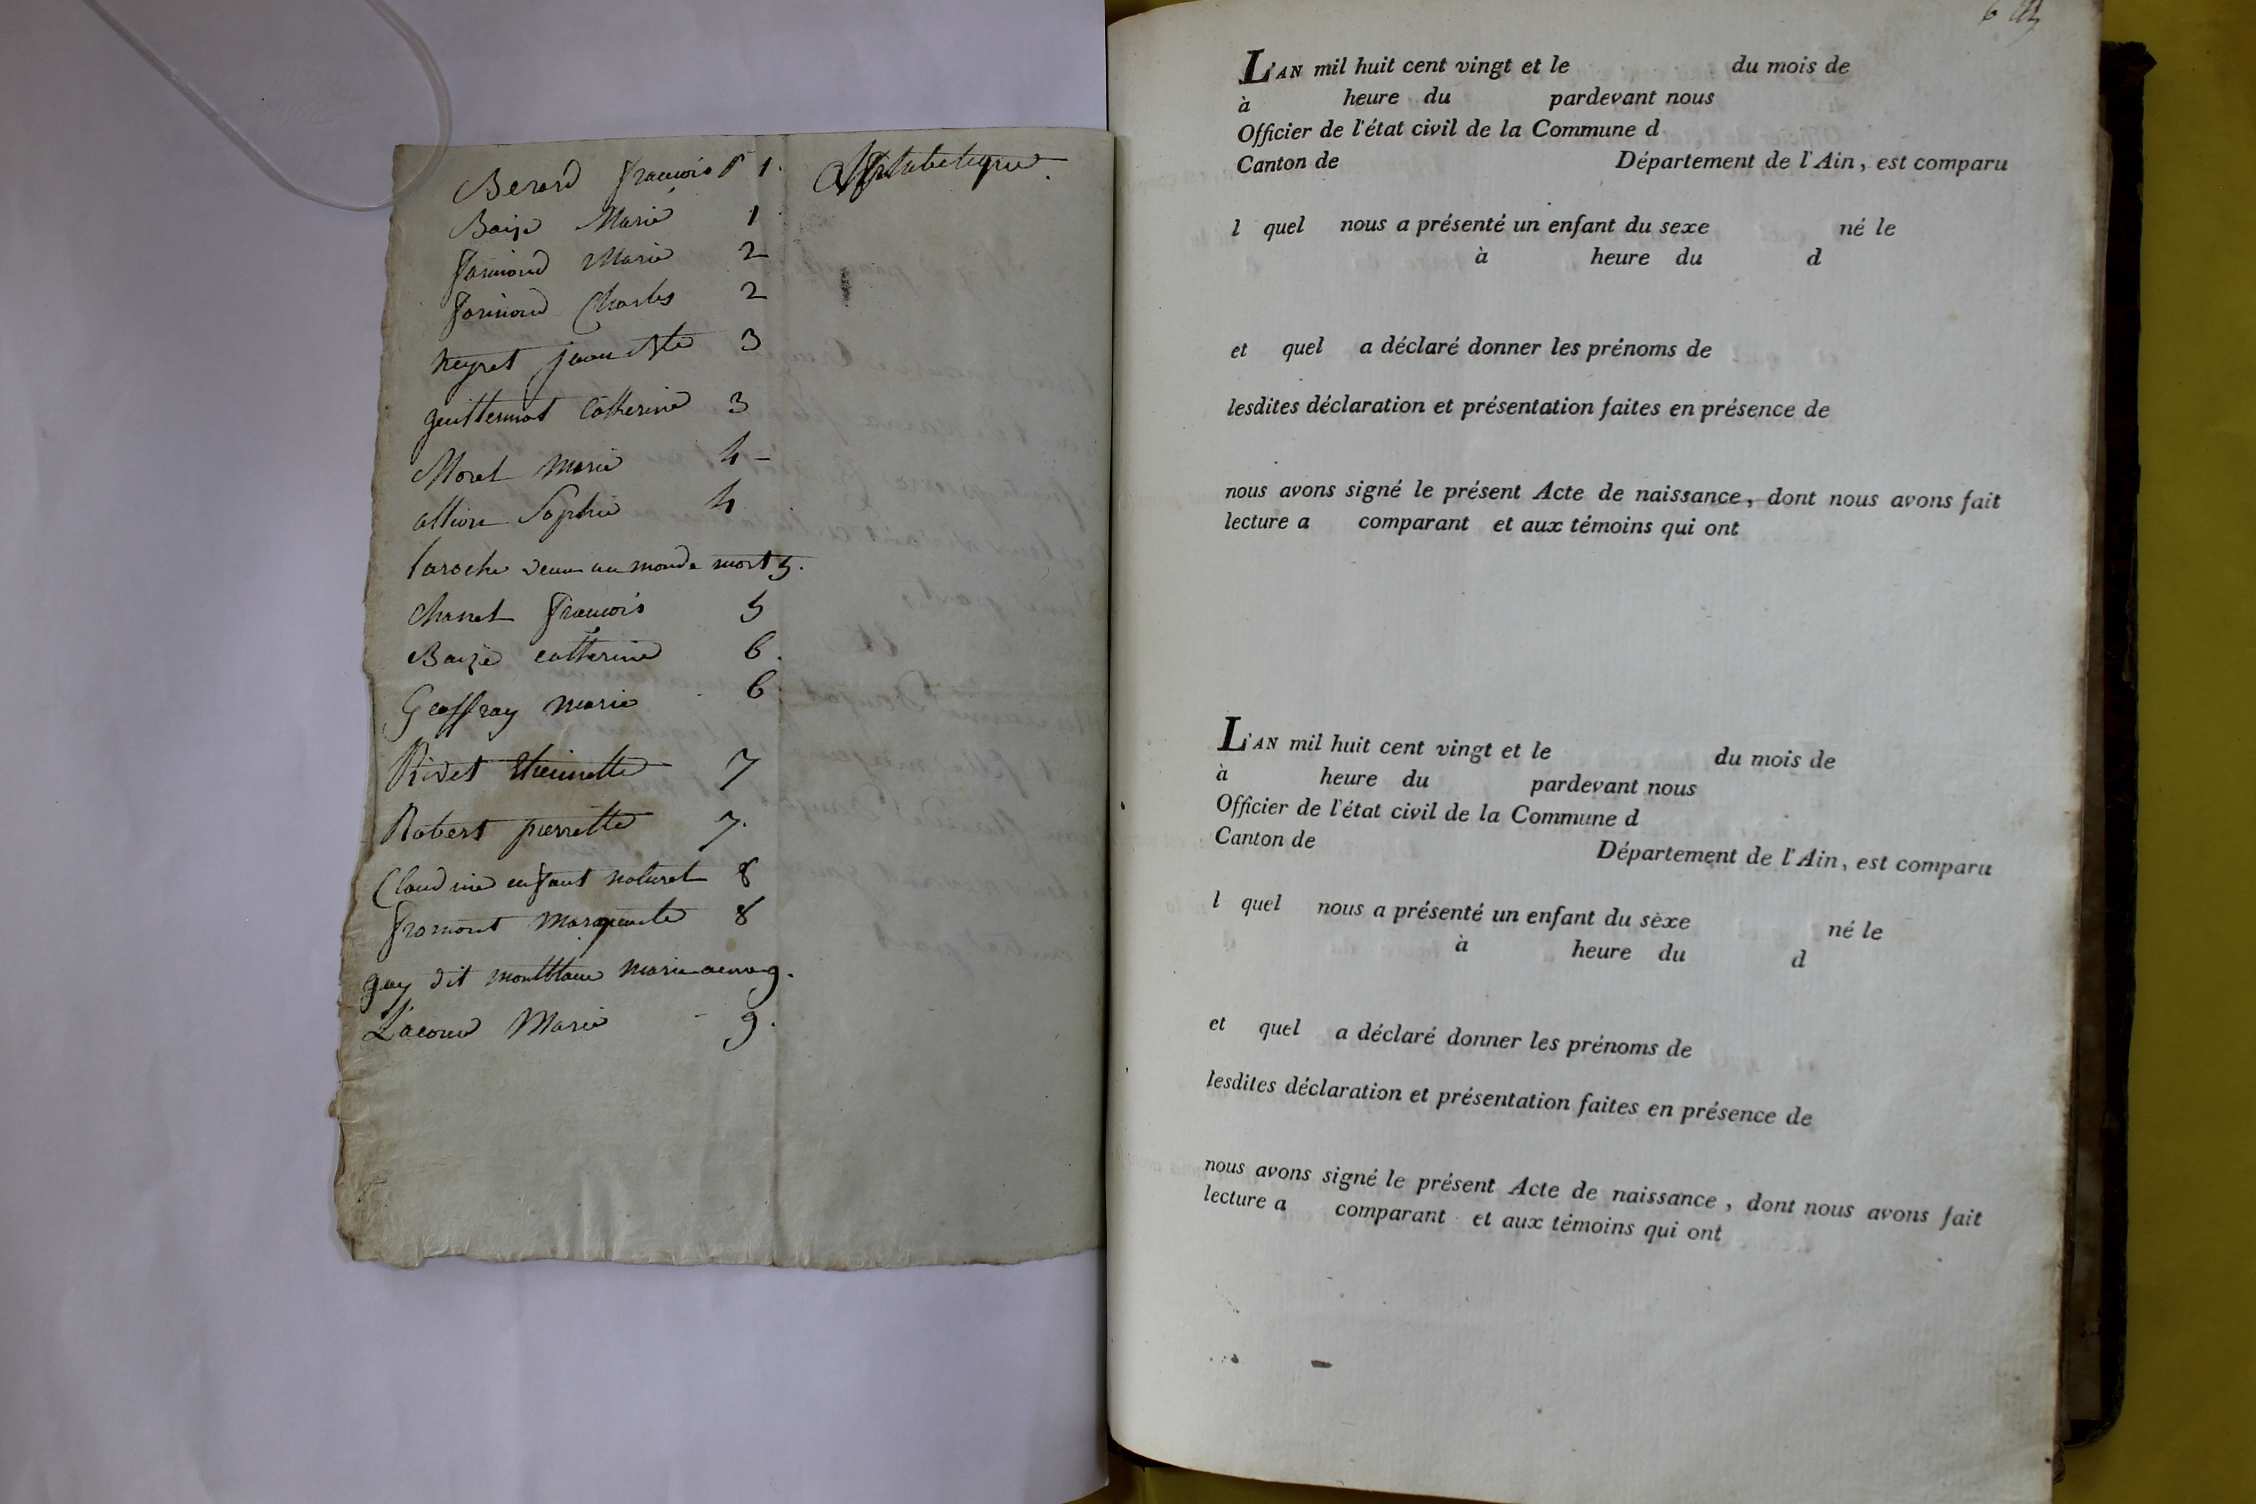 Berard françois f° 1.
Baize Marie 1
farmond Marie 2
farmond Charles 2
Neyret jean Bte 3
guillermot Catherine 3
Morel marie 4
Sophie 4
laroche venu au monde mort 5.
Chanel françois 5
Baize catherine 6.
Geoffray marie 6
Rivet Etiennette 7
Robert pierrette 7.
Claudine enfant naturel 8
fromont marguerite 8
guy dit montblanc marie 9.
Lacour Marie 9.
Alphabetique
L'AN mil huit cent vingt et le du mois de
à heure du pardevant nous
Officier de l'état civil de la Commune d
Canton de Département de l'Ain, est comparu
l quel nous a présenté un enfant du sexe né le
à heure du d
et quel a déclaré donner les prénoms de
lesdites déclaration et présentation faites en présence de
nous avons signé le présent Acte de naissance, dont nous avons fait
lecture a comparant et aux témoins qui ont
L'AN mil huit cent vingt et le du mois de
à heure du pardevant nous
Officier de l'état civil de la Commune d
Canton de Département de l'Ain, est comparu
l quel nous a présenté un enfant du sèxe né le
à heure du d
et quel a déclaré donner les prénoms de
lesdites déclaration et présentation faites en présence de
nous avons signé le présent Acte de naissance, dont nous avons fait
lecture a comparant et aux témoins qui ont